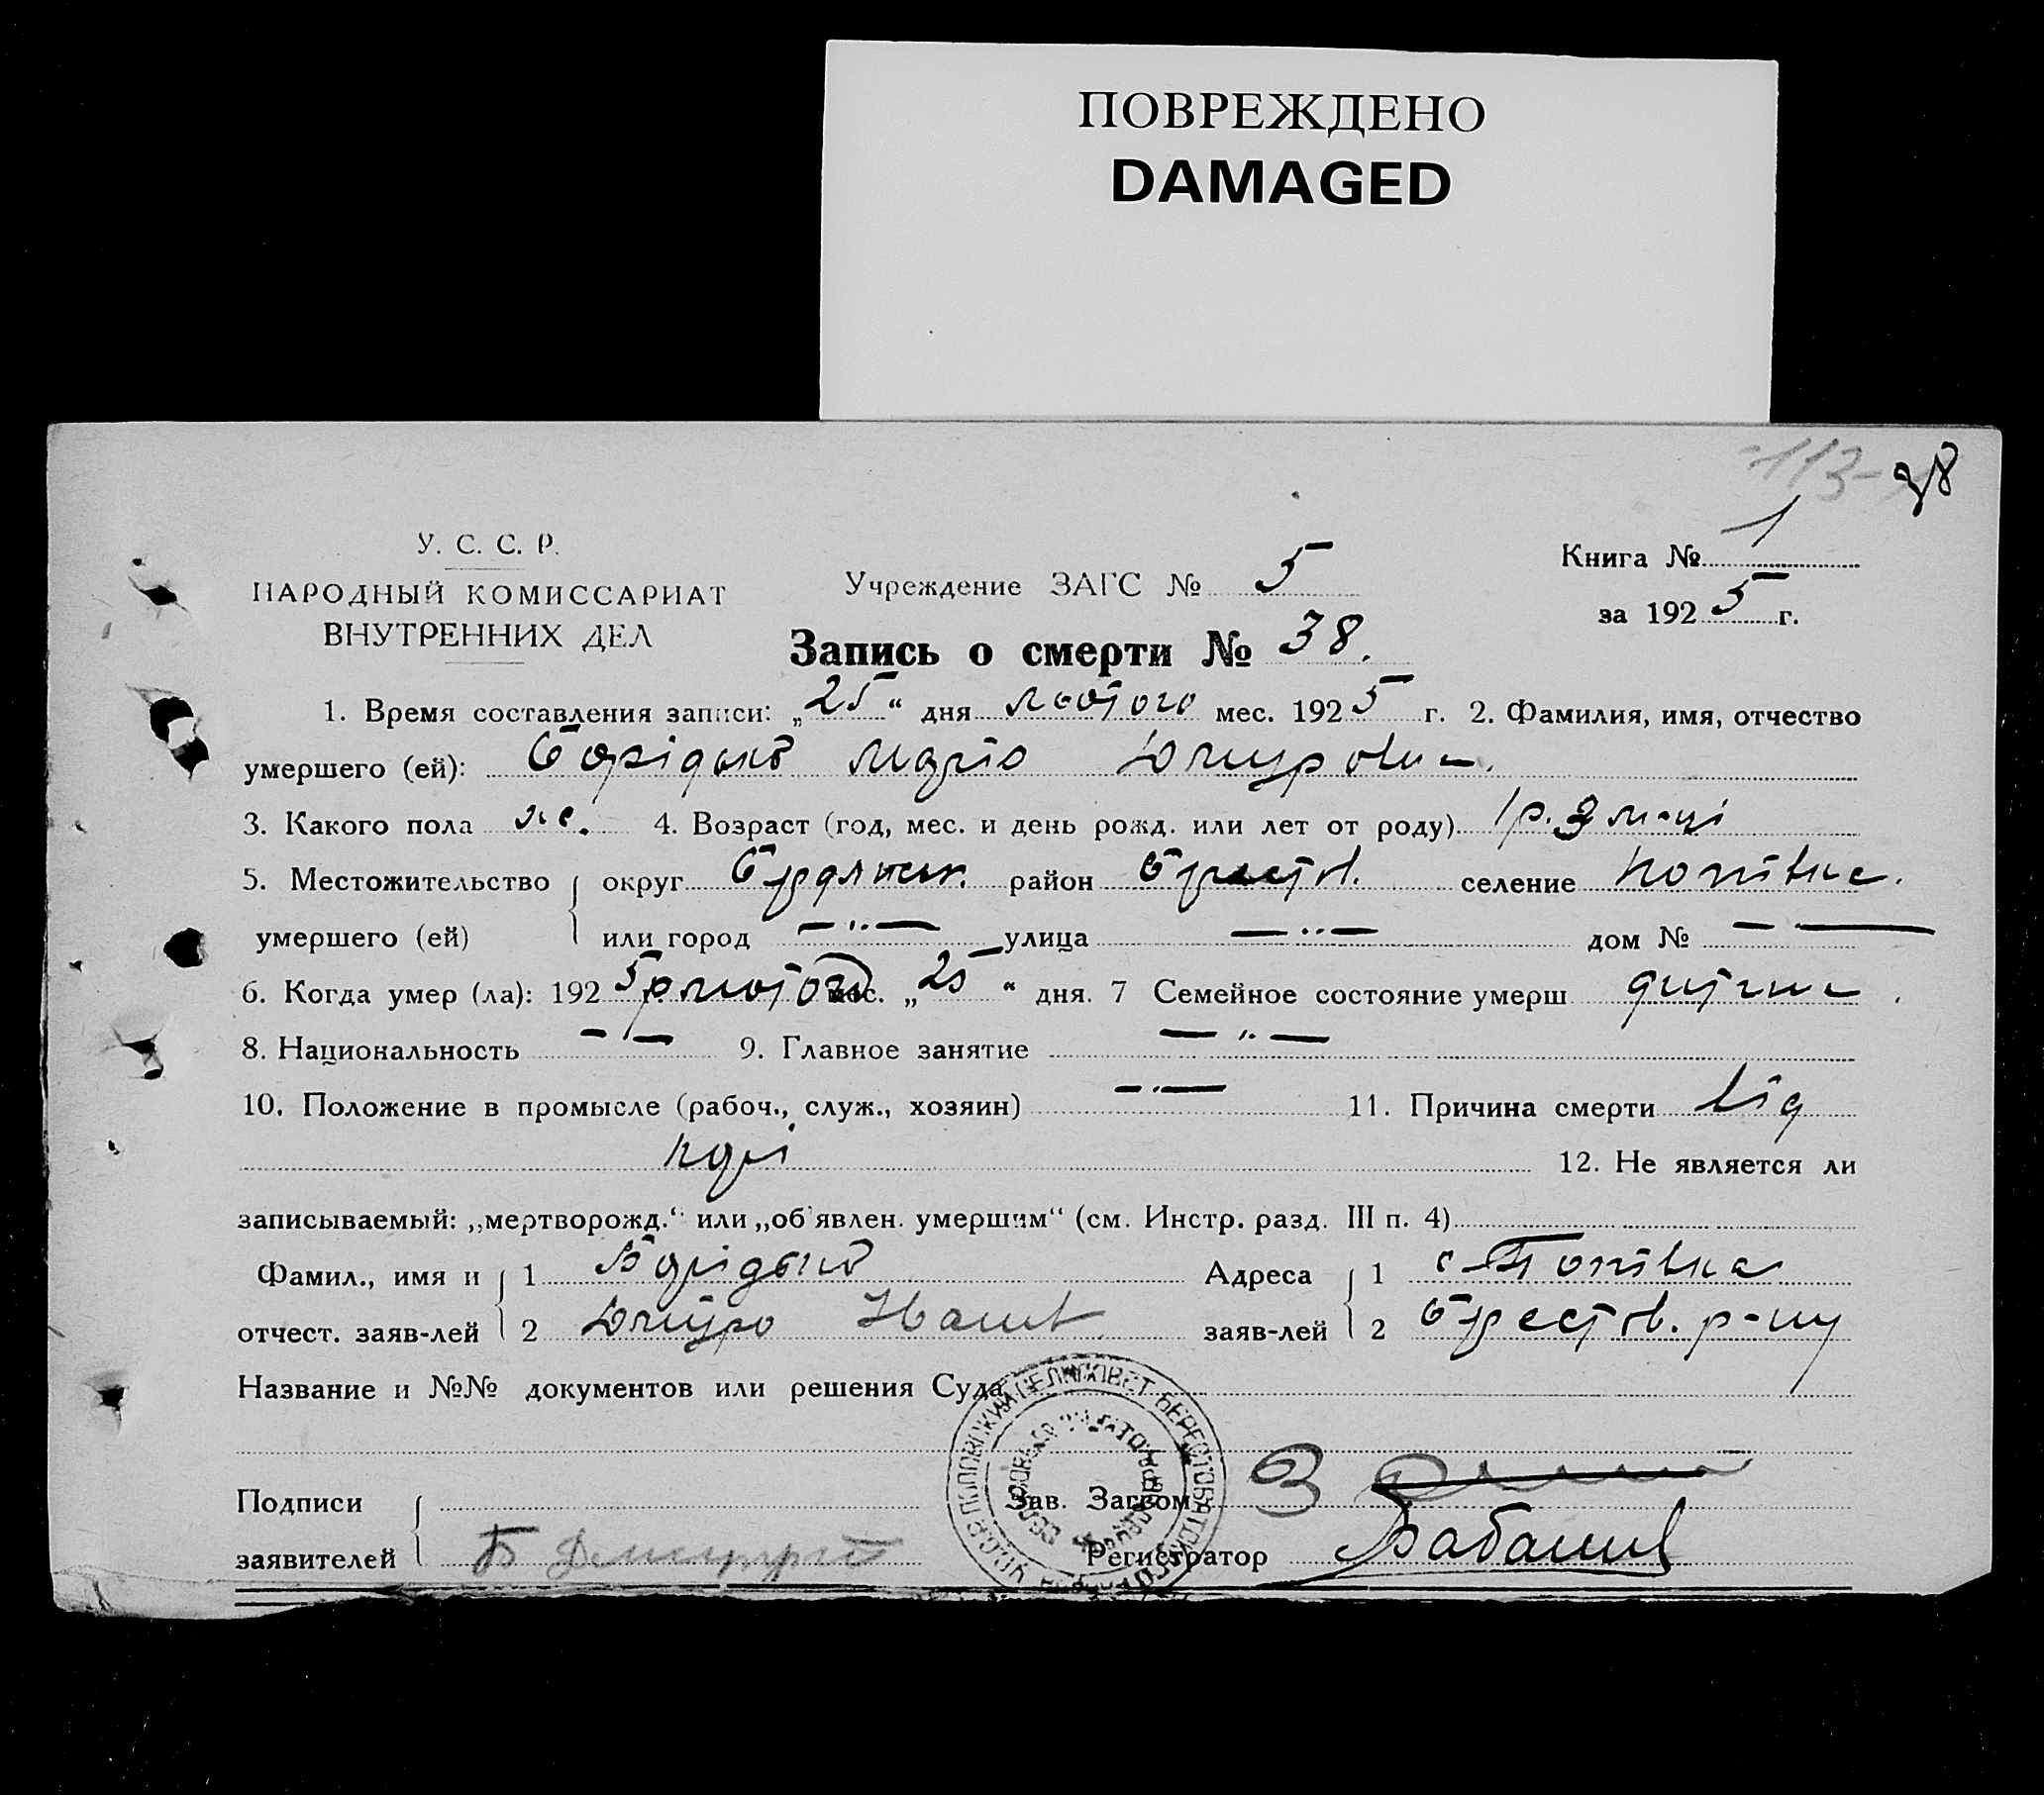 ПОВРЕЖДЕНО
DAMAGED
113- 38
У. С. С. Р.
НАРОДНЫЙ КОМИССАРИАТ
ВНУТРЕННИХ ДЕЛ
Учреждение ЗАГС № 5
Книга № 1
за 1925 г.
Запись о смерти № 38.
1. Время составления записи: „25“ дня лютого мес. 1925 г. 2. Фамилия, имя, отчество
умершего (ей): Марія Дмитровна.
3. Какого пола ж. 4. Возраст (год, мес. и день рожд. или лет от роду) 1 р. м-ці
5. Местожительство округ Бердянськ. район Берестов. селение Попівка.
умершего (ей) или город — „ — улица — „ — дом № — —
6. Когда умер (ла): 1925 р лютого мес. „25“ дня. 7 Семейное состояние умерш дитина.
8. Национальность — „ — 9. Главное занятие — „ —
10. Положение в промысле (рабоч., служ., хозяин) — „ — 11. Причина смерти від
корі 12. Не является ли
записываемый: „мертворожд.“ или „об'явлен. умершим“ (см. Инстр. разд. III п. 4)
Фамил., имя и 1 Адреса 1 с. Попівка
отчест. заяв-лей 2 Дмитро Іванов. заяв-лей 2 Берестов. р-ну
Название и №№ документов или решения Суда
Подписи Зав. Загсом
заявителей Б Дмитрий Регистратор